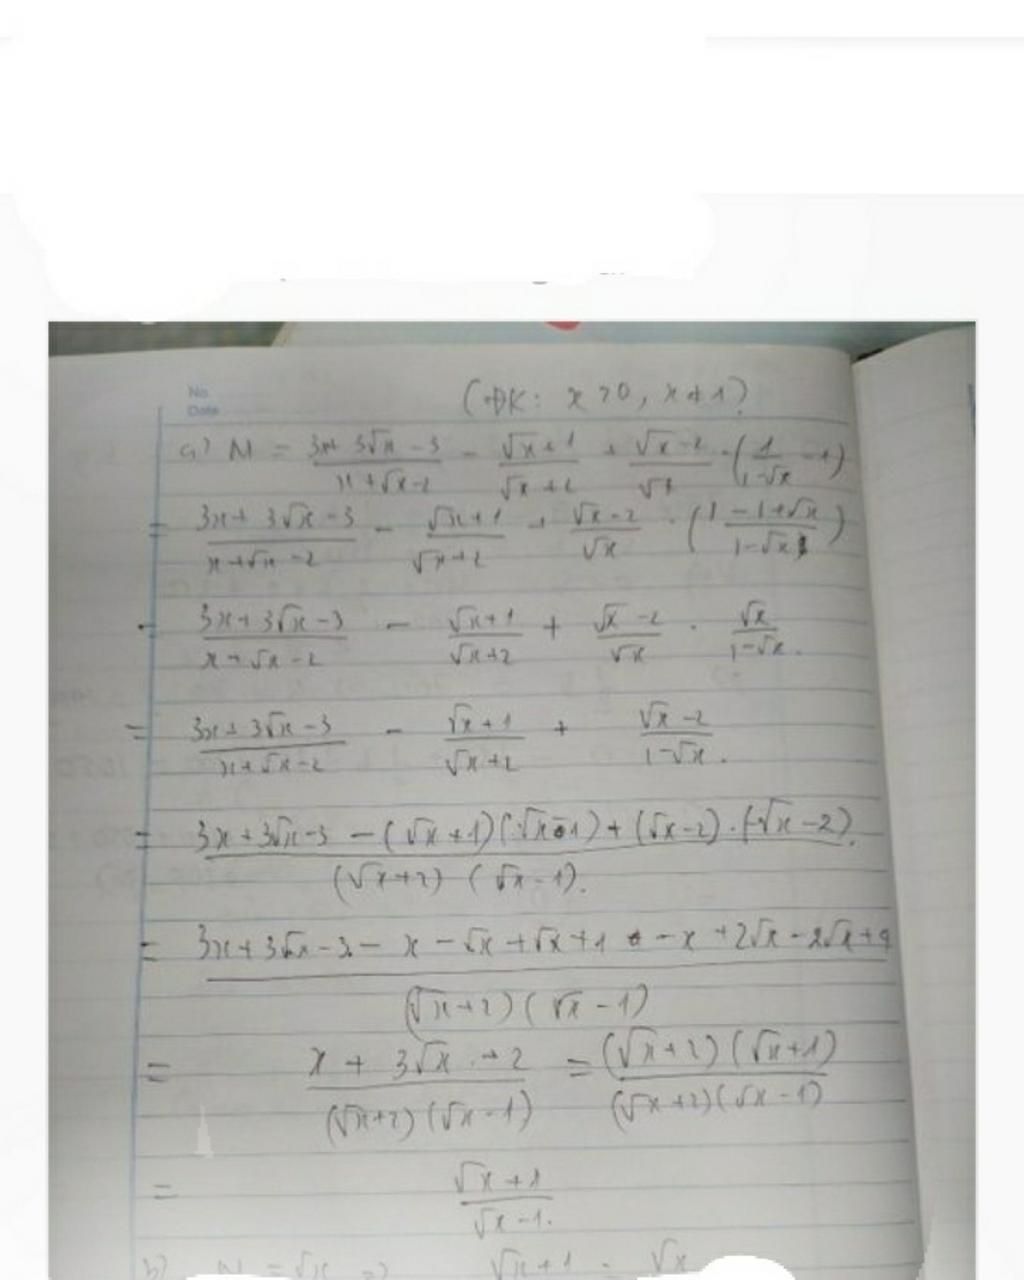 No.
Date
(ĐK: x > 0, x ≠ 1)
a) N = (3x + 3√x - 3)/(x + √x - 2) - (√x + 1)/(√x + 2) + (√x - 2)/√x · (1/(1 - √x) - 1)
= (3x + 3√x - 3)/(x + √x - 2) - (√x + 1)/(√x + 2) + (√x - 2)/√x · ((1 - 1 + √x)/(1 - √x))
= (3x + 3√x - 3)/(x + √x - 2) - (√x + 1)/(√x + 2) + (√x - 2)/√x · √x/(1 - √x).
= (3x + 3√x - 3)/(x + √x - 2) - (√x + 1)/(√x + 2) + (√x - 2)/(1 - √x).
= (3x + 3√x - 3 - (√x + 1)(√x - 1) + (√x - 2) · (-√x - 2))/((√x + 2)(√x - 1)).
= (3x + 3√x - 3 - x - √x + √x + 1 - x + 2√x - 2√x + 4)/((√x + 2)(√x - 1))
= (x + 3√x + 2)/((√x + 2)(√x - 1)) = ((√x + 2)(√x + 1))/((√x + 2)(√x - 1))
= (√x + 1)/(√x - 1).
b) N = √x => √x + 1 = √x